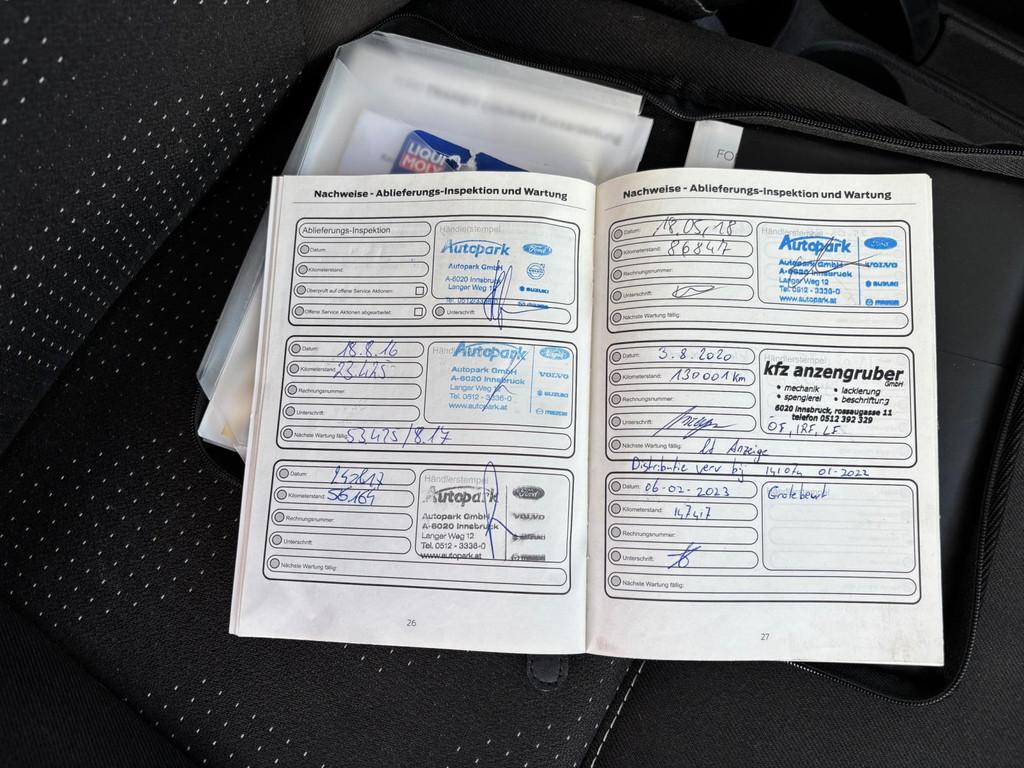 LIQUI
MOLY
FO
Nachweise - Ablieferungs-Inspektion und Wartung
Ablieferungs-Inspektion
Datum:
Kilometerstand:
Überprüft auf offene Service Aktionen:
Offene Service Aktionen abgearbeitet:
Händlerstempel
Autopark
Ford
Autopark GmbH
A-6020 Innsbruck
Langer Weg 12
Tel. 0512/3336-0
VOLVO
SUZUKI
mazda
Unterschrift:
Datum: 18.8.16
Kilometerstand: 23.425
Rechnungsnummer:
Unterschrift:
Nächste Wartung fällig: 53425/8.17
Händlerstempel
Autopark
Ford
Autopark GmbH
A-6020 Innsbruck
Langer Weg 12
Tel. 0512 - 3336-0
www.autopark.at
VOLVO
SUZUKI
mazda
Datum:
Kilometerstand: 56164
Rechnungsnummer:
Unterschrift:
Nächste Wartung fällig:
Händlerstempel
Autopark
Ford
Autopark GmbH
A-6020 Innsbruck
Langer Weg 12
Tel. 0512 - 3336-0
www.autopark.at
VOLVO
SUZUKI
mazda
26
Nachweise - Ablieferungs-Inspektion und Wartung
Datum: 18.05.18
Kilometerstand: 86847
Rechnungsnummer:
Unterschrift:
Nächste Wartung fällig:
Händlerstempel
Autopark
Ford
Autopark GmbH
A-6020 Innsbruck
Langer Weg 12
Tel. 0512 - 3336-0
www.autopark.at
VOLVO
SUZUKI
mazda
Datum: 3.8.2020
Kilometerstand: 130001 km
Rechnungsnummer:
Unterschrift:
Nächste Wartung fällig: lt Anzeige
Händlerstempel
kfz anzengruber
GmbH
• mechanik • lackierung
• spenglerei • beschriftung
6020 innsbruck, rossaugasse 11
telefon 0512 392 329
ÖF, IRF, LF
Distributie verv bij 01-2022
Datum: 06-02-2023
Kilometerstand: 147417
Rechnungsnummer:
Unterschrift:
Nächste Wartung fällig:
Grote beurt
27